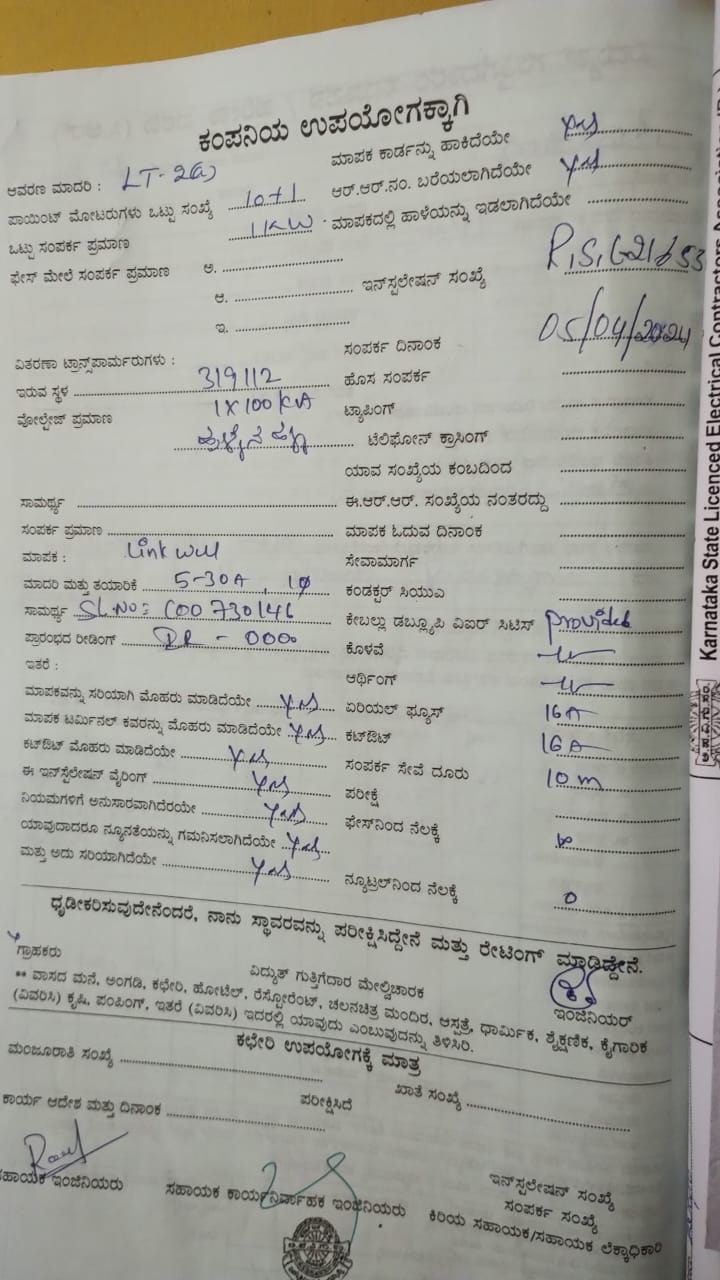 ಕಂಪನಿಯ ಉಪಯೋಗಕ್ಕಾಗಿ
ಆವರಣ ಮಾದರಿ : LT-2(a) ಮಾಪಕ ಕಾರ್ಡನ್ನು ಹಾಕಿದೆಯೇ Yes
ಪಾಯಿಂಟ್ ಮೋಟರುಗಳು ಒಟ್ಟು ಸಂಖ್ಯೆ 10+1 ಆರ್.ಆರ್.ನಂ. ಬರೆಯಲಾಗಿದೆಯೇ Yes
ಒಟ್ಟು ಸಂಪರ್ಕ ಪ್ರಮಾಣ 1KW ಮಾಪಕದಲ್ಲಿ ಹಾಳೆಯನ್ನು ಇಡಲಾಗಿದೆಯೇ
ಫೇಸ್ ಮೇಲೆ ಸಂಪರ್ಕ ಪ್ರಮಾಣ ಅ.
ಆ. ಇನ್‌ಸ್ಪಲೇಷನ್ ಸಂಖ್ಯೆ
ಇ.
ಸಂಪರ್ಕ ದಿನಾಂಕ 05/04/2024
ವಿತರಣಾ ಟ್ರಾನ್ಸ್‌ಪಾರ್ಮರುಗಳು :
ಇರುವ ಸ್ಥಳ 319112 ಹೊಸ ಸಂಪರ್ಕ
ವೋಲ್ಟೇಜ್ ಪ್ರಮಾಣ 1X100KVA ಟ್ಯಾಪಿಂಗ್
ಟೆಲಿಫೋನ್ ಕ್ರಾಸಿಂಗ್
ಯಾವ ಸಂಖ್ಯೆಯ ಕಂಬದಿಂದ
ಸಾಮರ್ಥ್ಯ ಈ.ಆರ್.ಆರ್. ಸಂಖ್ಯೆಯ ನಂತರದ್ದು
ಸಂಪರ್ಕ ಪ್ರಮಾಣ ಮಾಪಕ ಓದುವ ದಿನಾಂಕ
ಮಾಪಕ : Link Well ಸೇವಾಮಾರ್ಗ
ಮಾದರಿ ಮತ್ತು ತಯಾರಿಕೆ 5-30A, 1ϕ ಕಂಡಕ್ಟರ್ ಸಿಯುಎ
ಸಾಮರ್ಥ್ಯ SL.No: C00730146 ಕೇಬಲ್ಲು ಡಬ್ಲ್ಯೂಪಿ ವಿಐಆರ್ ಸಿಟಿಸ್ Provided
ಪ್ರಾರಂಭದ ರೀಡಿಂಗ್ IR - 0000 ಕೊಳವೆ
ಇತರೆ :
ಆರ್ಥಿಂಗ್
ಮಾಪಕವನ್ನು ಸರಿಯಾಗಿ ಮೊಹರು ಮಾಡಿದೆಯೇ Yes ಏರಿಯಲ್ ಫ್ಯೂಸ್ 16A
ಮಾಪಕ ಟರ್ಮಿನಲ್ ಕವರನ್ನು ಮೊಹರು ಮಾಡಿದೆಯೇ Yes ಕಟ್‌ಔಟ್ 16A
ಕಟ್‌ಔಟ್ ಮೊಹರು ಮಾಡಿದೆಯೇ Yes ಸಂಪರ್ಕ ಸೇವೆ ದೂರು 10m
ಈ ಇನ್‌ಸ್ಪೆಲೇಷನ್ ವೈರಿಂಗ್ Yes ಪರೀಕ್ಷೆ
ನಿಯಮಗಳಿಗೆ ಅನುಸಾರವಾಗಿದೆರಯೇ Yes ಫೇಸ್‌ನಿಂದ ನೆಲಕ್ಕೆ
ಯಾವುದಾದರೂ ನ್ಯೂನತೆಯನ್ನು ಗಮನಿಸಲಾಗಿದೆಯೇ Yes
ಮತ್ತು ಅದು ಸರಿಯಾಗಿದೆಯೇ Yes ನ್ಯೂಟ್ರಲ್‌ನಿಂದ ನೆಲಕ್ಕೆ 0
ಧೃಡೀಕರಿಸುವುದೇನೆಂದರೆ, ನಾನು ಸ್ಥಾವರವನ್ನು ಪರೀಕ್ಷಿಸಿದ್ದೇನೆ ಮತ್ತು ರೇಟಿಂಗ್ ಮಾಡಿದ್ದೇನೆ.
ಗ್ರಾಹಕರು ವಿದ್ಯುತ್ ಗುತ್ತಿಗೆದಾರ ಮೇಲ್ವಿಚಾರಕ ಇಂಜಿನಿಯರ್
** ವಾಸದ ಮನೆ, ಅಂಗಡಿ, ಕಛೇರಿ, ಹೋಟೆಲ್, ರೆಸ್ಟೋರೆಂಟ್, ಚಲನಚಿತ್ರ ಮಂದಿರ, ಆಸ್ಪತ್ರೆ, ಧಾರ್ಮಿಕ, ಶೈಕ್ಷಣಿಕ, ಕೈಗಾರಿಕ
(ವಿವರಿಸಿ) ಕೃಷಿ, ಪಂಪಿಂಗ್, ಇತರೆ (ವಿವರಿಸಿ) ಇದರಲ್ಲಿ ಯಾವುದು ಎಂಬುವುದನ್ನು ತಿಳಿಸಿರಿ.
ಕಛೇರಿ ಉಪಯೋಗಕ್ಕೆ ಮಾತ್ರ
ಮಂಜೂರಾತಿ ಸಂಖ್ಯೆ ಖಾತೆ ಸಂಖ್ಯೆ
ಕಾರ್ಯ ಆದೇಶ ಮತ್ತು ದಿನಾಂಕ ಪರೀಕ್ಷಿಸಿದೆ
ಸಹಾಯಕ ಇಂಜಿನಿಯರು ಸಹಾಯಕ ಕಾರ್ಯನಿರ್ವಾಹಕ ಇಂಜಿನಿಯರು
ಇನ್‌ಸ್ಪಲೇಷನ್ ಸಂಖ್ಯೆ
ಸಂಪರ್ಕ ಸಂಖ್ಯೆ
ಕಿರಿಯ ಸಹಾಯಕ/ಸಹಾಯಕ ಲೆಕ್ಕಾಧಿಕಾರಿ
Karnataka State Licenced Electrical Contractors Association